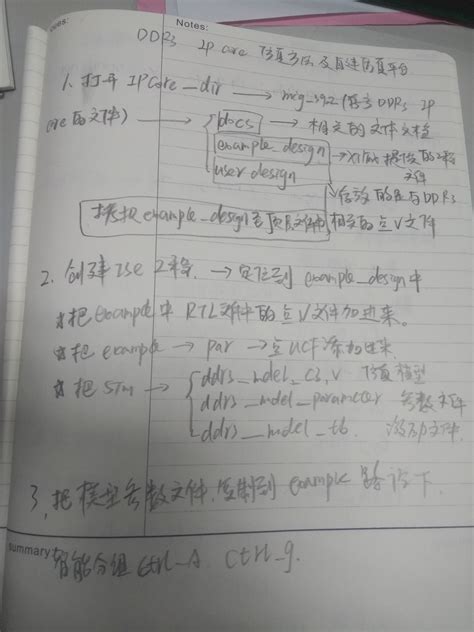 Notes:
DDR3 IP core 仿真方法及自建仿真平台
1. 打开 IPCore_dir → mig_392 (存立 DDR3 IP
core 的文件) → docs → 相关的文体文档
example design → Xilinx 提供的工程文件
user design → 的是与DDR3相关的.V文件
example_design 至顶层文件中
2. 创建 ISE 工程. → 定位到 example_design 中
☆把 example 中 RTL 文件中的 .V 文件加进来。
☆把 example → par → UCF 添加进来
☆把 sim → ddr3_model_c3.v 仿真模型
ddr3_model_parameter 参数文件
ddr3_model_tb. 文件.
3. 把模型参数文件.复制到 example 路径下.
Summary:
智能分组 Ctrl_A. Ctrl_g.